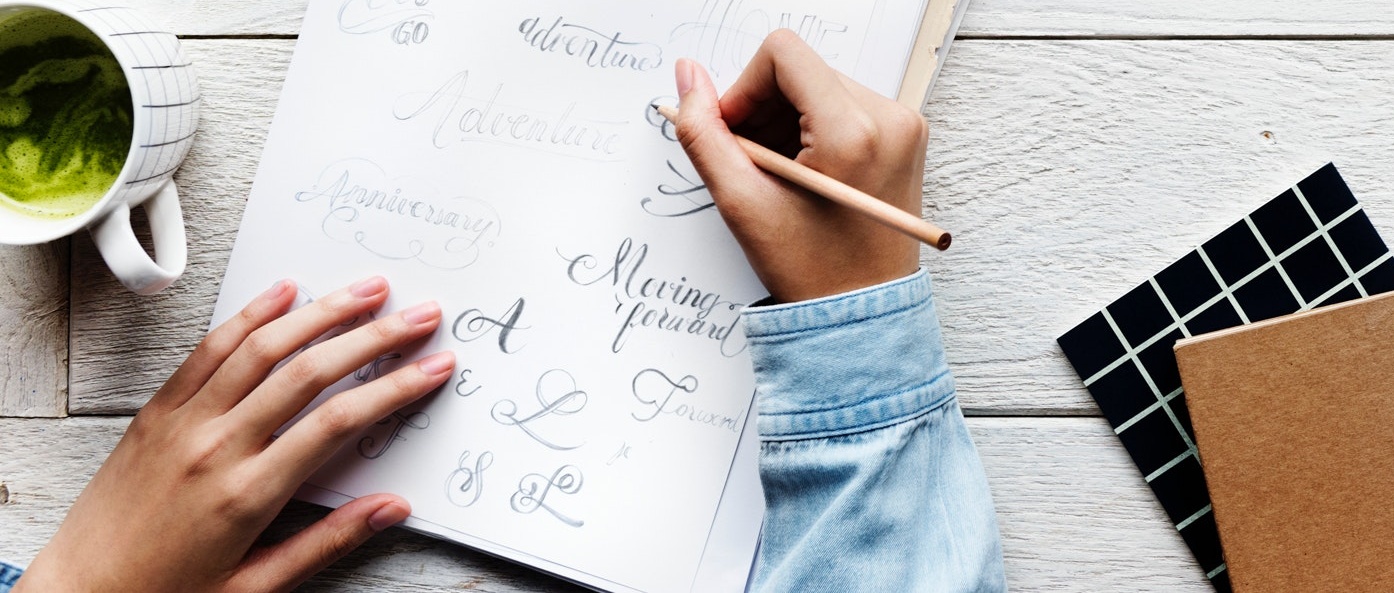 GO
adventure
HOME
Adventure
Anniversary
Moving
forward
A
E
L
Forward
F
S
L